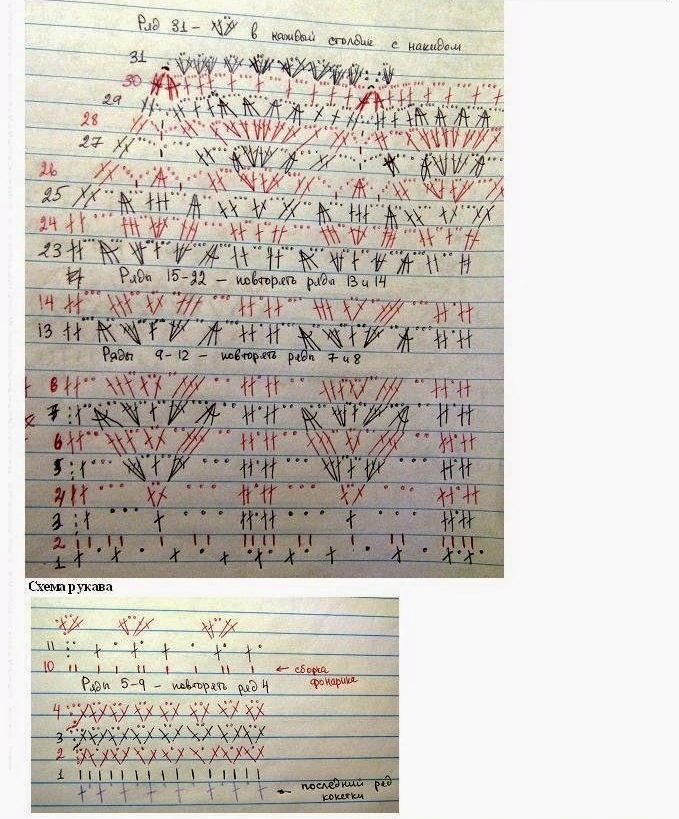 Ряд 31 – в каждый столбик с накидом
31
30
29
28
27
26
25
24
23
Ряды 15-22 – повторять ряды 13 и 14
14
13
Ряды 9-12 – повторять ряды 7 и 8
8
7
6
5
4
3
2
1
Схема рукава
11
10 ← сборка
фонарика
Ряды 5-9 – повторять ряд 4
4
3
2
1
← последний ряд
кокетки